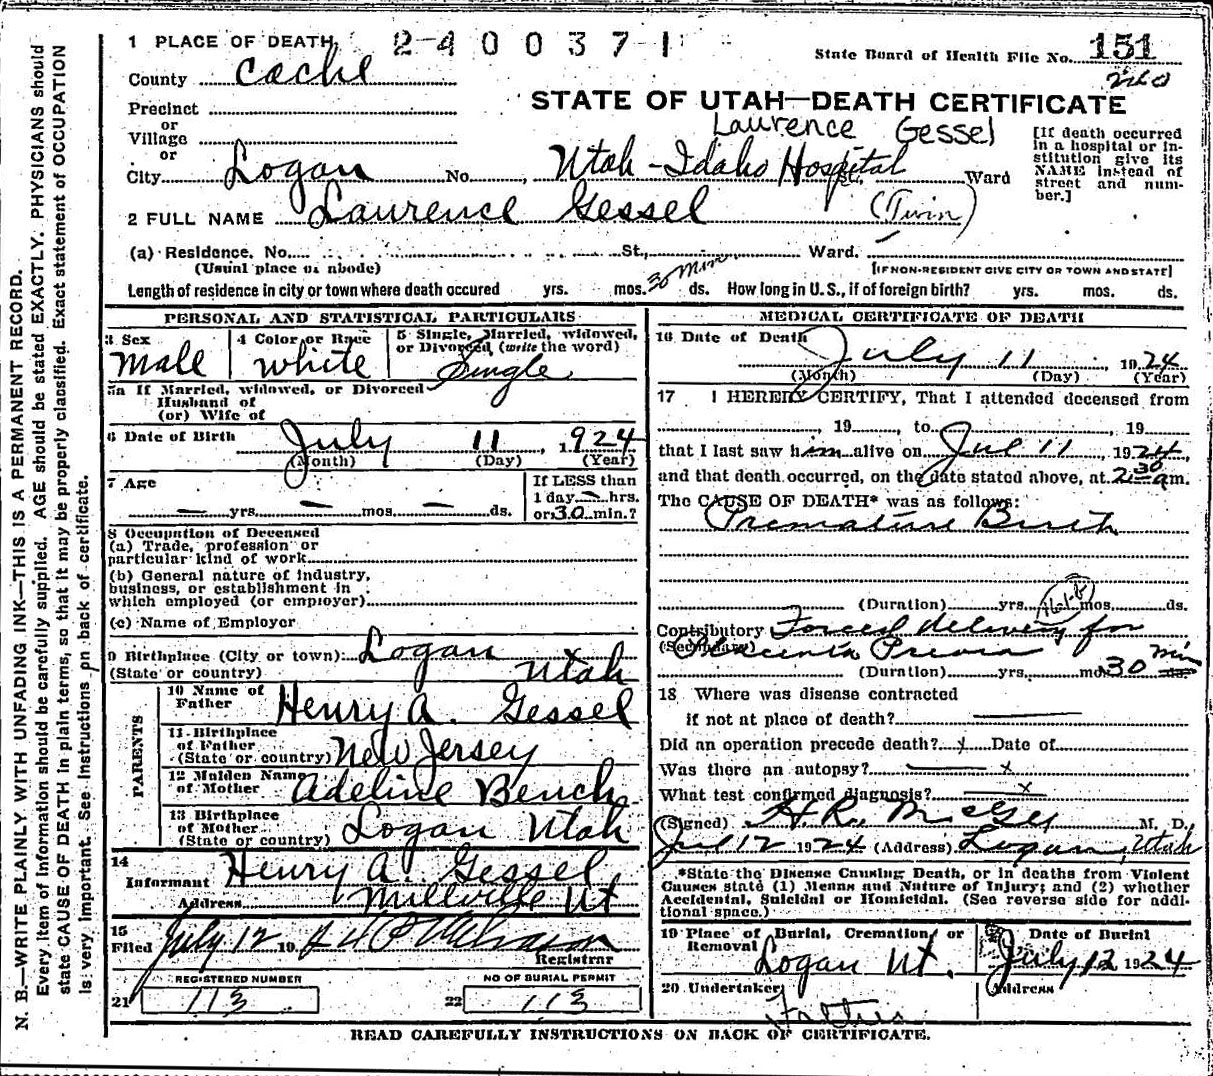 N. B.—WRITE PLAINLY WITH UNFADING INK—THIS IS A PERMANENT RECORD.
Every item of information should be carefully supplied. AGE should be stated EXACTLY. PHYSICIANS should
state CAUSE OF DEATH in plain terms, so that it may be properly classified. Exact statement of OCCUPATION
is very important. See instructions on back of certificate.
1 PLACE OF DEATH 2400371
State Board of Health File No. 151
County Cache
STATE OF UTAH—DEATH CERTIFICATE
Precinct
or
Laurence Gessel
Village
or
City Logan No. , Utah-Idaho Hospital St., Ward
[If death occurred
in a hospital or in-
stitution give its
NAME instead of
street and num-
ber.]
2 FULL NAME Laurence Gessel (Twin)
(a) Residence. No. St., Ward.
(Usual place of abode) [IF NON-RESIDENT GIVE CITY OR TOWN AND STATE]
Length of residence in city or town where death occured yrs. mos. 30 min ds. How long in U. S., if of foreign birth? yrs. mos. ds.
PERSONAL AND STATISTICAL PARTICULARS
3 Sex Male
4 Color or Race White
5 Single, Married, widowed,
or Divorced (write the word)
Single
5a If Married, widowed, or Divorced
Husband of
(or) Wife of
6 Date of Birth July 11, 1924
(Month) (Day) (Year)
7 Age — yrs. — mos. — ds.
If LESS than
1 day — hrs.
or 30 min.?
8 Occupation of Deceased
(a) Trade, profession or
particular kind of work
(b) General nature of industry,
business, or establishment in
which employed (or employer)
(c) Name of Employer
9 Birthplace (City or town) Logan
(State or country) Utah
PARENTS
10 Name of
Father Henry A. Gessel
11 Birthplace
of Father
(State or country) New Jersey
12 Maiden Name
of Mother Adeline Bench
13 Birthplace
of Mother
(State or country) Logan Utah
14
Informant Henry A Gessel
Address Millville Ut
15
Filed July 12 19
Registrar
REGISTERED NUMBER
21 113
NO OF BURIAL PERMIT
22 113
MEDICAL CERTIFICATE OF DEATH
16 Date of Death
July 11, 1924
(Month) (Day) (Year)
17 I HEREBY CERTIFY, That I attended deceased from
, 19 , to , 19
that I last saw him alive on Jul 11, 1924,
and that death occurred, on the date stated above, at 2:30 am.
The CAUSE OF DEATH* was as follows:
Premature Birth
(Duration) yrs. mos. ds.
Contributory Forced delivery for
(Secondary) Placenta Previa
(Duration) yrs. mos. 30 min ds.
18 Where was disease contracted
if not at place of death? —
Did an operation precede death? x Date of
Was there an autopsy? — x
What test confirmed diagnosis? x
(Signed) H. R. McGee M. D.
Jul 12 1924 (Address) Logan, Utah
*State the Disease Causing Death, or in deaths from Violent
Causes state (1) Means and Nature of Injury; and (2) whether
Accidental, Suicidal or Homicidal. (See reverse side for addi-
tional space.)
19 Place of Burial, Cremation, or
Removal Logan Ut.
Date of Burial
July 12 1924
20 Undertaker Father
Address
READ CAREFULLY INSTRUCTIONS ON BACK OF CERTIFICATE.